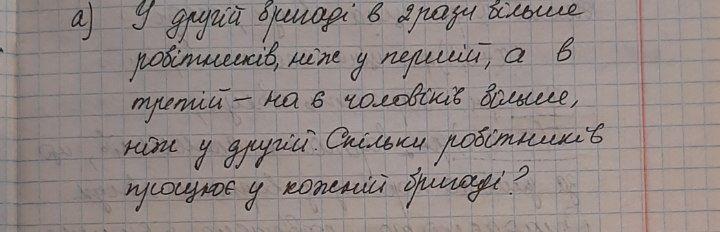 а) У другій бригаді в 2 рази більше
робітників, ніж у першій, а в
третій – на 6 чоловіків більше,
ніж у другій. Скільки робітників
працює у кожній бригаді?